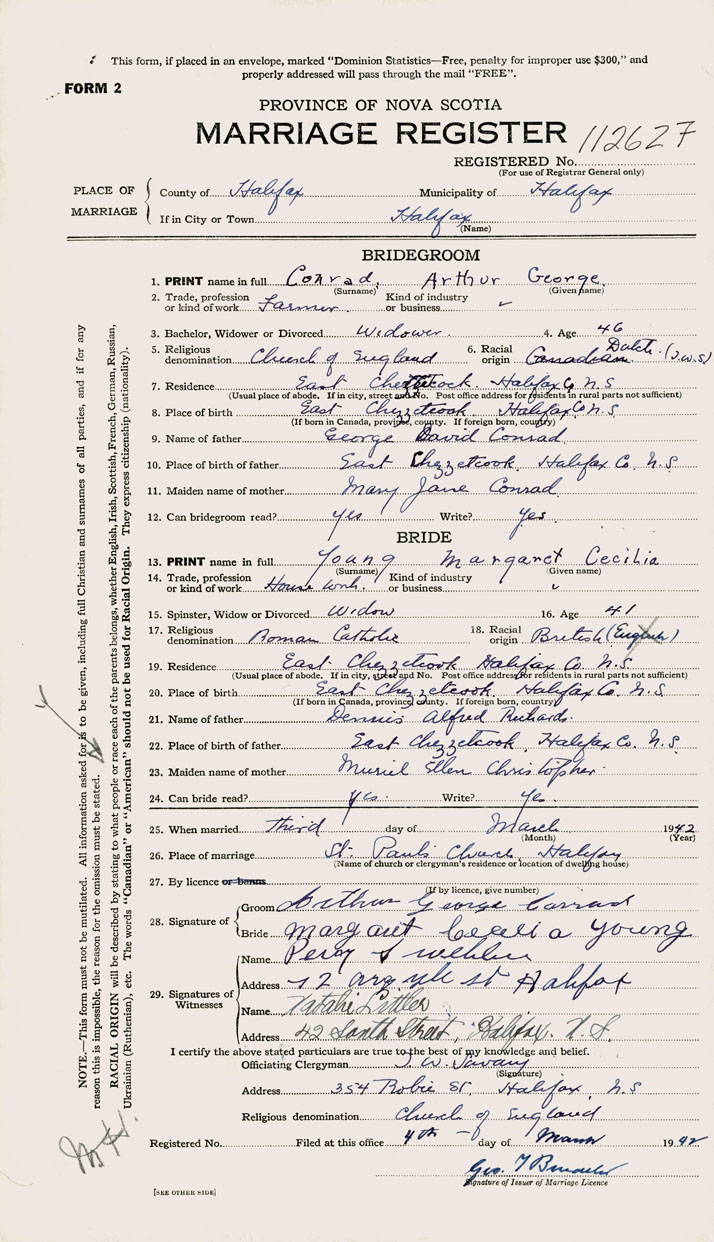 This form, if placed in an envelope, marked "Dominion Statistics—Free, penalty for improper use $300," and
properly addressed will pass through the mail "FREE".
FORM 2
PROVINCE OF NOVA SCOTIA
MARRIAGE REGISTER 112627
REGISTERED No.
(For use of Registrar General only)
PLACE OF MARRIAGE
County of Halifax Municipality of Halifax
If in City or Town Halifax
(Name)
BRIDEGROOM
1. PRINT name in full Conrad, Arthur George
(Surname) (Given name)
2. Trade, profession or kind of work Farmer Kind of industry or business
3. Bachelor, Widower or Divorced Widower 4. Age 46
5. Religious denomination Church of England 6. Racial origin Canadian Dutch (J.W.S)
7. Residence East Chezzetcook Halifax Co N.S
(Usual place of abode. If in city, street and No. Post office address for residents in rural parts not sufficient)
8. Place of birth East Chezzetcook Halifax Co N.S
(If born in Canada, province, county. If foreign born, country)
9. Name of father George David Conrad
10. Place of birth of father East Chezzetcook, Halifax Co. N.S
11. Maiden name of mother Mary Jane Conrad
12. Can bridegroom read? yes Write? yes.
BRIDE
13. PRINT name in full Young Margaret Cecilia
(Surname) (Given name)
14. Trade, profession or kind of work House work. Kind of industry or business
15. Spinster, Widow or Divorced Widow 16. Age 41
17. Religious denomination Roman Catholic 18. Racial origin British (English)
19. Residence East Chezzetcook Halifax Co. N.S
(Usual place of abode. If in city, street and No. Post office address for residents in rural parts not sufficient)
20. Place of birth East Chezzetcook Halifax Co. N.S
(If born in Canada, province, county. If foreign born, country)
21. Name of father Dennis Alfred Richards.
22. Place of birth of father East Chezzetcook, Halifax Co. N.S.
23. Maiden name of mother Muriel Ellen Christopher
24. Can bride read? yes. Write? yes.
25. When married third day of March 1942
(Month) (Year)
26. Place of marriage St. Paul's Church, Halifax
(Name of church or clergyman's residence or location of dwelling house)
27. By licence or banns
(If by licence, give number)
28. Signature of
Groom Arthur George Conrad
Bride Margaret Cecelia Young
29. Signatures of Witnesses
Name Percy
Address 72 argyle st Halifax
Name Natalie Littler
Address 42 South Street, Halifax. N.S.
I certify the above stated particulars are true to the best of my knowledge and belief.
Officiating Clergyman J. W. Savary
(Signature)
Address 354 Robie St. Halifax, N.S
Religious denomination Church of England
Registered No. Filed at this office 4th day of March 1942
Geo.
Signature of Issuer of Marriage Licence
[SEE OTHER SIDE]
NOTE.—This form must not be mutilated. All information asked for is to be given, including full Christian and surnames of all parties, and if for any
reason this is impossible, the reason for the omission must be stated.
RACIAL ORIGIN will be described by stating to what people or race each of the parents belongs, whether English, Irish, Scottish, French, German, Russian,
Ukrainian (Ruthenian), etc. The words "Canadian" or "American" should not be used for Racial Origin. They express citizenship (nationality).